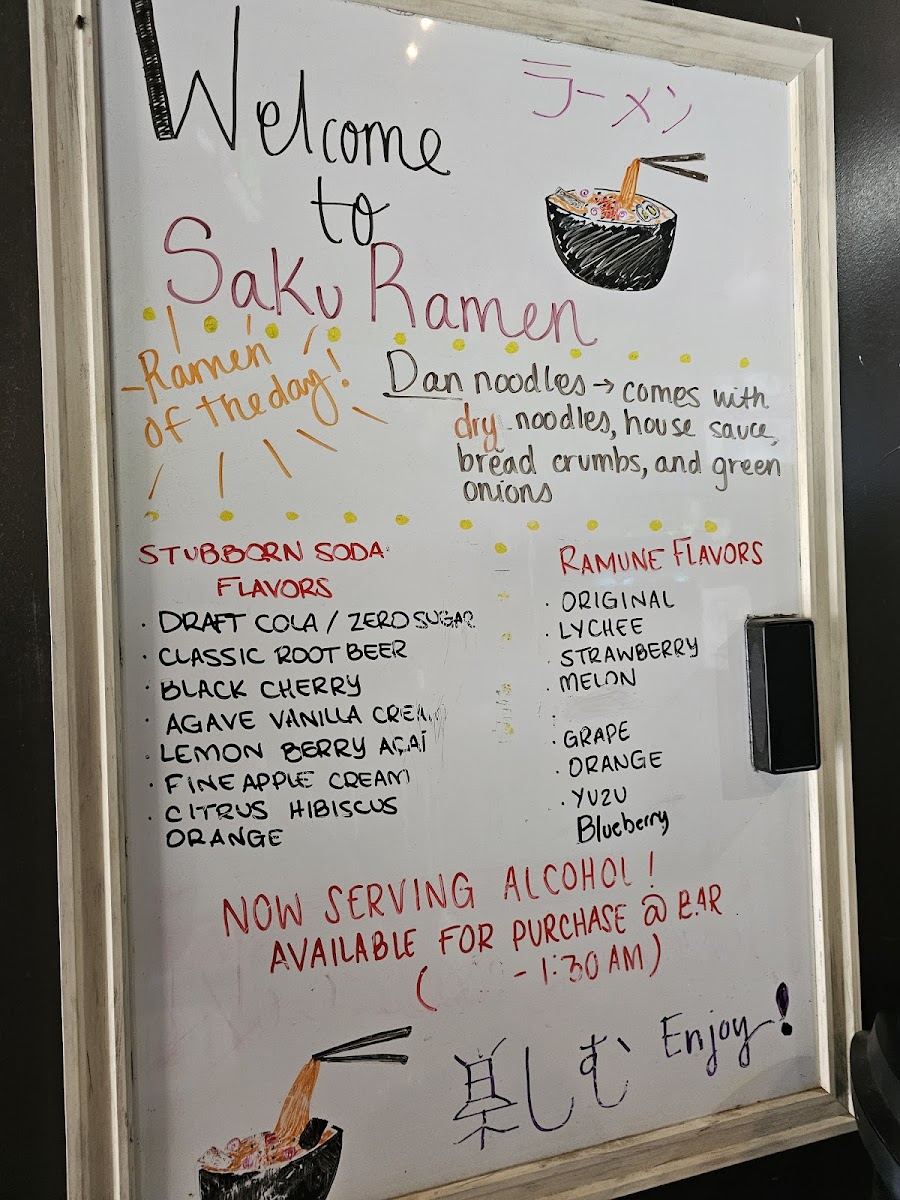 Welcome
to
Saku Ramen
ラーメン
-Ramen
of the day!
Dan noodles → comes with
dry noodles, house sauce,
bread crumbs, and green
onions
STUBBORN SODA
FLAVORS
· DRAFT COLA / ZERO SUGAR
· CLASSIC ROOT BEER
· BLACK CHERRY
· AGAVE VANILLA CREAM
· LEMON BERRY AÇAÍ
· PINEAPPLE CREAM
· CITRUS HIBISCUS
ORANGE
RAMUNE FLAVORS
· ORIGINAL
· LYCHEE
· STRAWBERRY
· MELON
·
· GRAPE
· ORANGE
· YUZU
Blueberry
NOW SERVING ALCOHOL!
AVAILABLE FOR PURCHASE @ BAR
( - 1:30 AM)
楽しむ Enjoy!